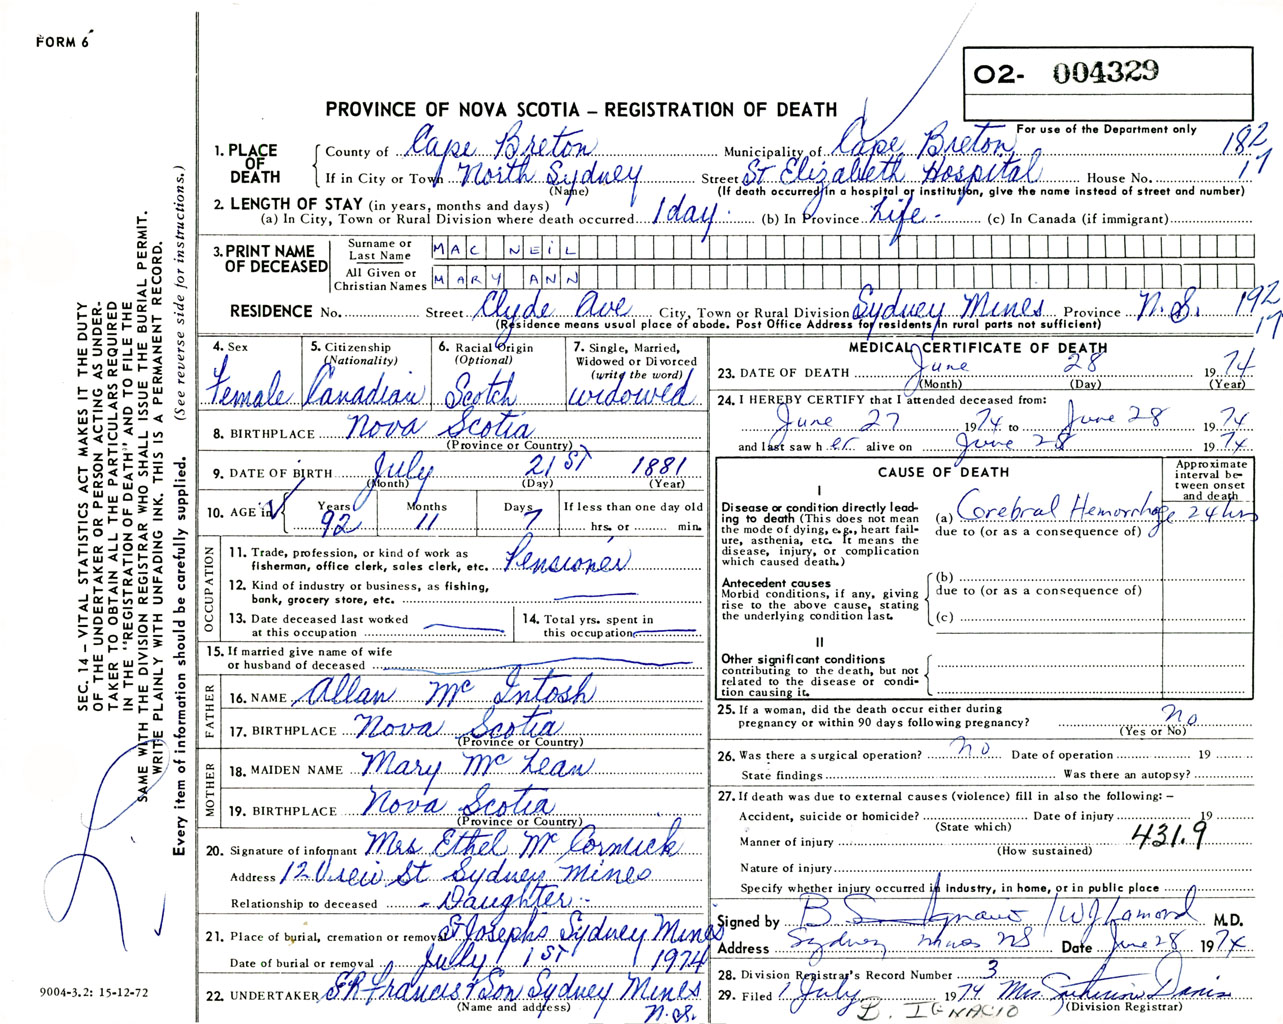 FORM 6
O2- 004329
PROVINCE OF NOVA SCOTIA – REGISTRATION OF DEATH
For use of the Department only
1. PLACE OF DEATH
County of Cape Breton Municipality of Cape Breton 182
If in City or Town North Sydney Street St Elizabeth Hospital House No. 17
(Name) (If death occurred in a hospital or institution, give the name instead of street and number)
2. LENGTH OF STAY (in years, months and days)
(a) In City, Town or Rural Division where death occurred 1 day. (b) In Province Life - (c) In Canada (if immigrant)
3. PRINT NAME OF DECEASED
Surname or Last Name MAC NEIL
All Given or Christian Names MARY ANN
RESIDENCE No. Street Clyde Ave City, Town or Rural Division Sydney Mines Province N.S. 192
(Residence means usual place of abode. Post Office Address for residents in rural parts not sufficient) 17
4. Sex
Female
5. Citizenship
(Nationality)
Canadian
6. Racial Origin
(Optional)
Scotch
7. Single, Married,
Widowed or Divorced
(write the word)
widowed
8. BIRTHPLACE Nova Scotia
(Province or Country)
9. DATE OF BIRTH July 21ST 1881
(Month) (Day) (Year)
10. AGE in
Years Months Days If less than one day old
92 11 7 hrs. or min.
OCCUPATION
11. Trade, profession, or kind of work as
fisherman, office clerk, sales clerk, etc. Pensioner
12. Kind of industry or business, as fishing,
bank, grocery store, etc.
13. Date deceased last worked
at this occupation
14. Total yrs. spent in
this occupation
15. If married give name of wife
or husband of deceased
FATHER
16. NAME Allan McIntosh
17. BIRTHPLACE Nova Scotia
(Province or Country)
MOTHER
18. MAIDEN NAME Mary McLean
19. BIRTHPLACE Nova Scotia
(Province or Country)
20. Signature of informant Mrs Ethel McCormick
Address 12 View St Sydney Mines
Relationship to deceased - Daughter -
21. Place of burial, cremation or removal St Josephs Sydney Mines
Date of burial or removal July 1ST 1974
22. UNDERTAKER Francis & Son Sydney Mines
(Name and address) N.S.
MEDICAL CERTIFICATE OF DEATH
23. DATE OF DEATH June 28 1974
(Month) (Day) (Year)
24. I HEREBY CERTIFY that I attended deceased from:
June 27 1974 to June 28 1974
and last saw her alive on June 28 1974
CAUSE OF DEATH
Approximate
interval be-
tween onset
and death
I
Disease or condition directly lead-
ing to death (This does not mean
the mode of dying, e.g., heart fail-
ure, asthenia, etc. It means the
disease, injury, or complication
which caused death.)
(a) Cerebral Hemorrhage 24 hrs
due to (or as a consequence of)
Antecedent causes
Morbid conditions, if any, giving
rise to the above cause, stating
the underlying condition last.
(b)
due to (or as a consequence of)
(c)
II
Other significant conditions
contributing to the death, but not
related to the disease or condi-
tion causing it.
25. If a woman, did the death occur either during
pregnancy or within 90 days following pregnancy? no
(Yes or No)
26. Was there a surgical operation? no Date of operation 19
State findings Was there an autopsy?
27. If death was due to external causes (violence) fill in also the following: –
Accident, suicide or homicide? Date of injury 19
(State which)
Manner of injury 431.9
(How sustained)
Nature of injury
Specify whether injury occurred in Industry, in home, or in public place
Signed by B. S Ignacio / WJ Lamond M.D.
Address Sydney Mines NS Date June 28 1974
28. Division Registrar's Record Number 3
29. Filed 1 July 1974 Mrs Davis
B. IGNACIO (Division Registrar)
SEC. 14 – VITAL STATISTICS ACT MAKES IT THE DUTY
OF THE UNDERTAKER OR PERSON ACTING AS UNDER-
TAKER TO OBTAIN ALL THE PARTICULARS REQUIRED
IN THE "REGISTRATION OF DEATH" AND TO FILE THE
SAME WITH THE DIVISION REGISTRAR WHO SHALL ISSUE THE BURIAL PERMIT.
WRITE PLAINLY WITH UNFADING INK. THIS IS A PERMANENT RECORD.
Every item of information should be carefully supplied. (See reverse side for instructions.)
9004-3.2: 15-12-72